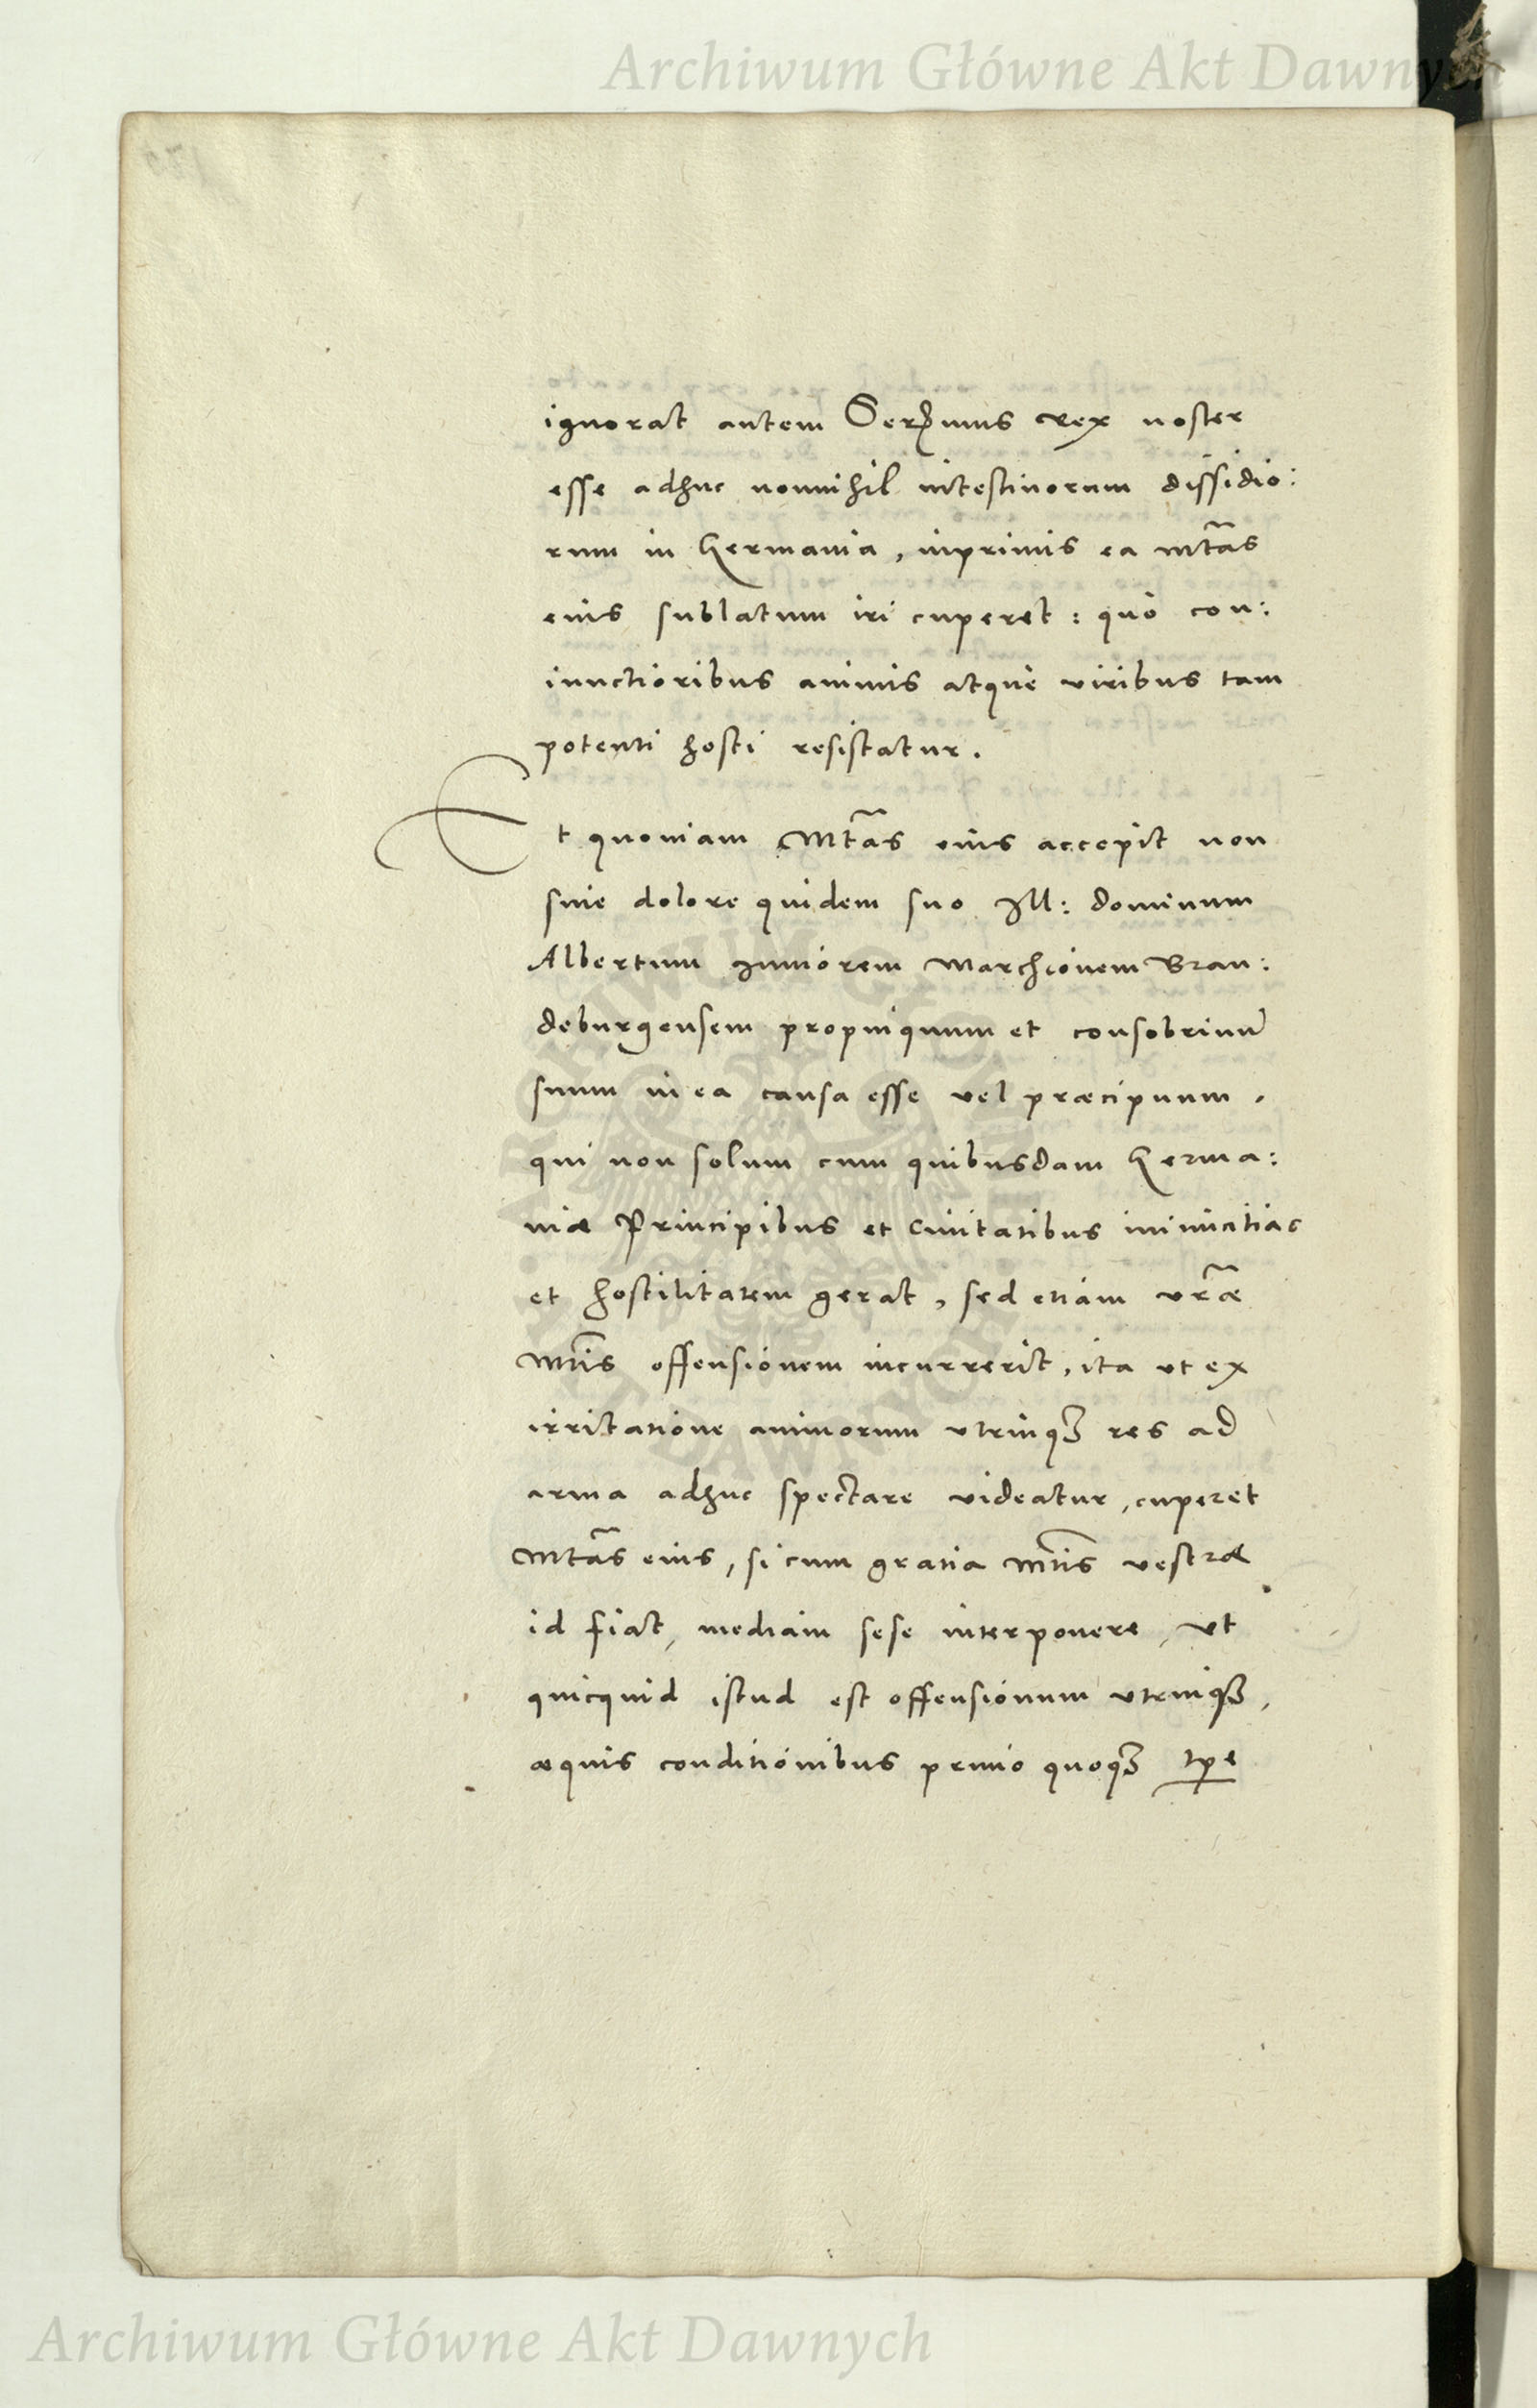 Archiwum Główne Akt Dawnych
ignorat autem Serᵐnimus Rex noster
esse adhuc nonnihil intestinorum dissidio:
rum in Germania, inprimis ea Mtãs
eius sublatum iri cuperet: quò con:
iunctioribus animis atque viribus tam
potenti hosti resistatur.
Et quoniam Mtãs eius accepit non
sine dolore quidem suo Ill: dominum
Albertum Iuniorem Marchionem Bran:
deburgensem propinquum et consobrinũ
suum in ea causa esse vel præcipuum.
qui non solum cum quibusdam Germa:
niæ Principibus et Civitatibus inimicitias
et hostilitatem gerat, sed etiam vr̃æ
Mtĩs offensionem incurrerit, ita ut ex
irritatione animorum utrinqȝ res ad
arma adhuc spectare videatur, cuperet
Mtãs eius, si cum gratia Mtĩs vestræ
id fiat, mediam sese interponere, ut
quicquid istud est offensionum utrinqȝ,
æquis conditionibus primo quoqȝ tp̱e
Archiwum Główne Akt Dawnych